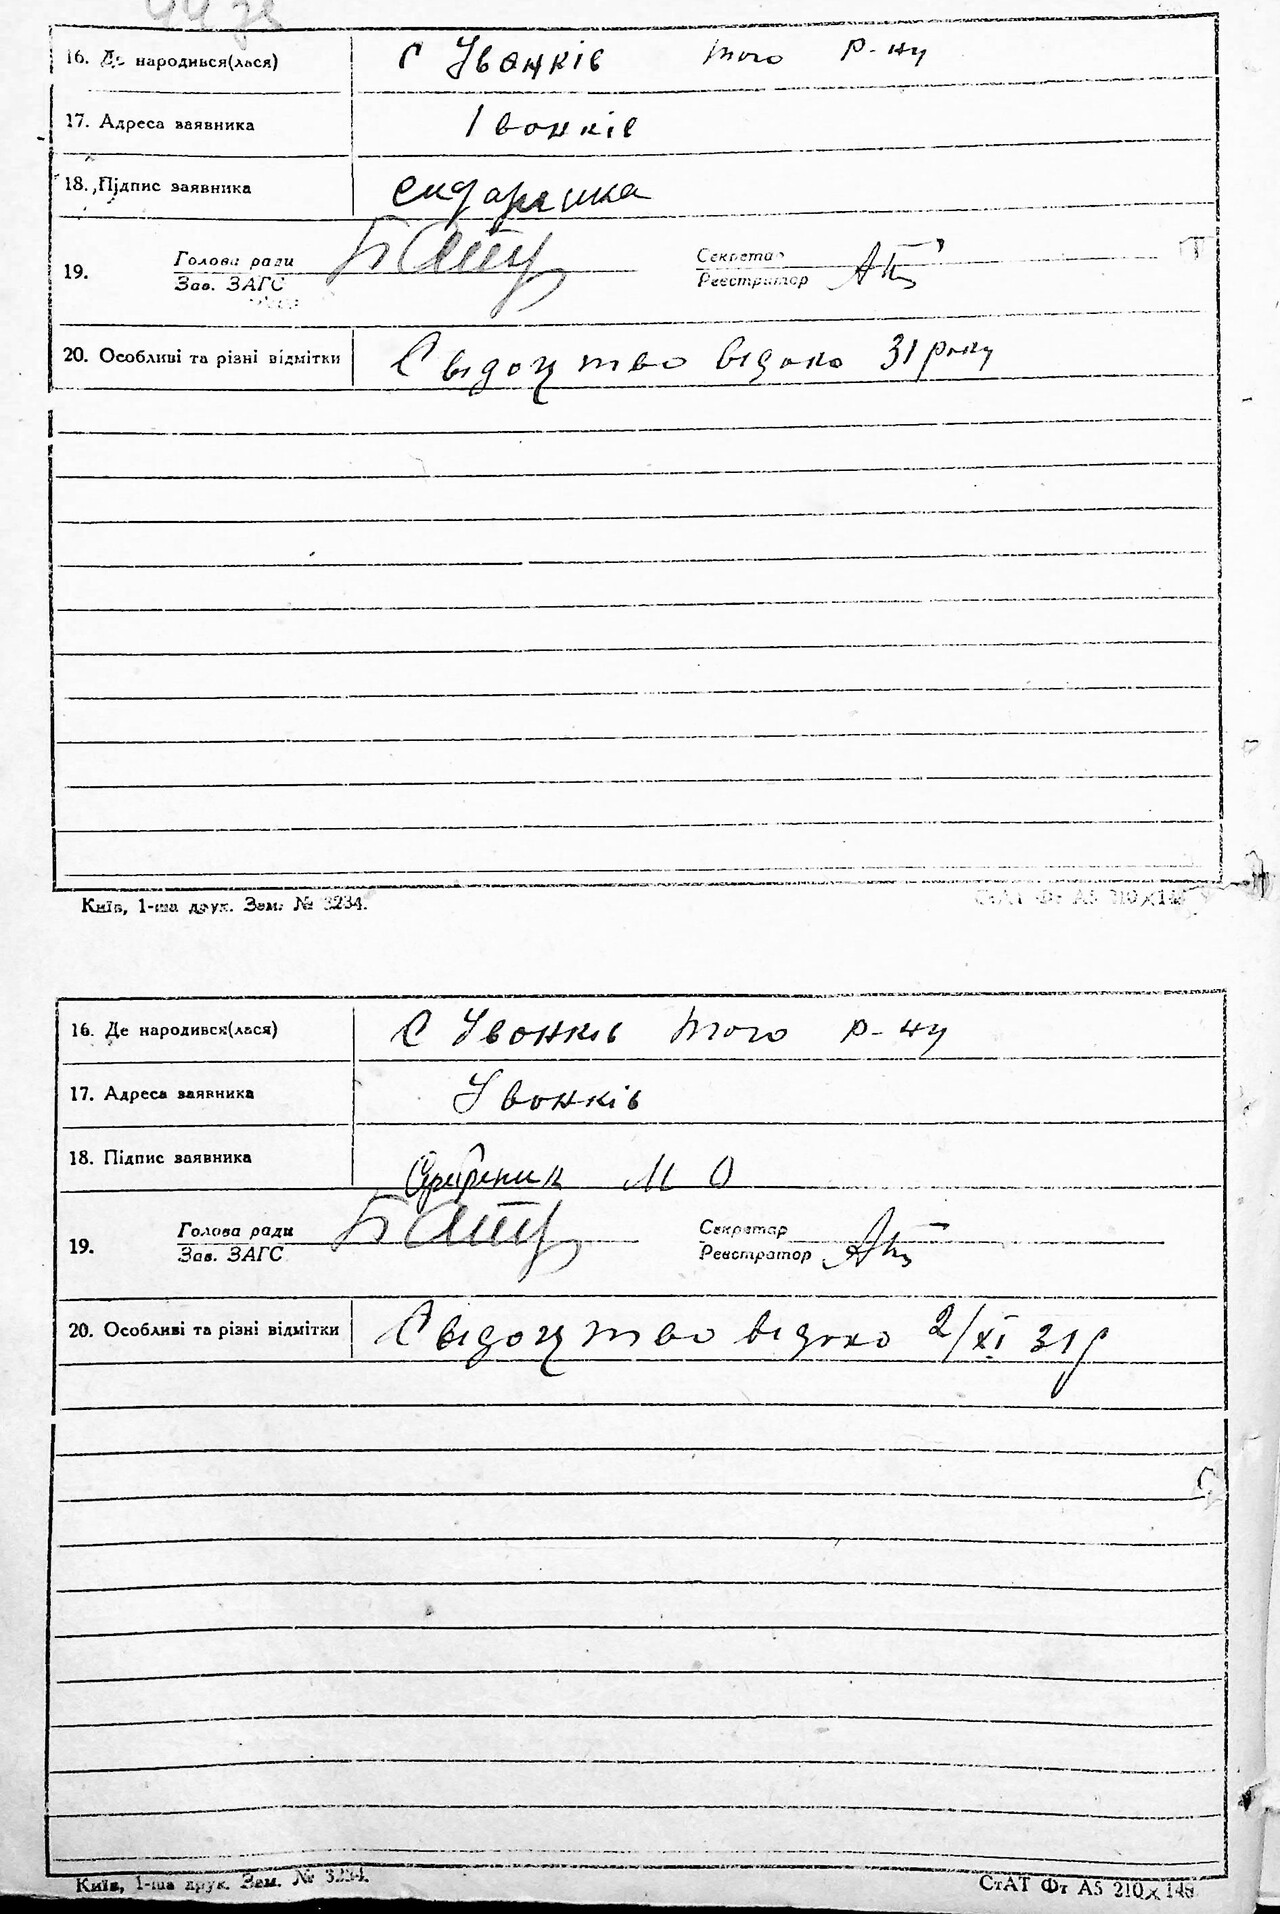 16. Де народився(лася) с Івонків того р-ну
17. Адреса заявника Івонків
18. Підпис заявника
19. Голова ради Секретар
Зав. ЗАГС Реєстратор
20. Особливі та різні відмітки Свідоцтво відоно 31 року
Київ, 1-ша друк. Зам. № 3234.
СтАТ Фт А5 210×148
16. Де народився(лася) с Івонків того р-ну
17. Адреса заявника Івонків
18. Підпис заявника М О
19. Голова ради Секретар
Зав. ЗАГС Реєстратор
20. Особливі та різні відмітки Свідоцтво відоно 2/XI 31р
Київ, 1-ша друк. Зам. № 3234.
СтАТ Фт А5 210×148